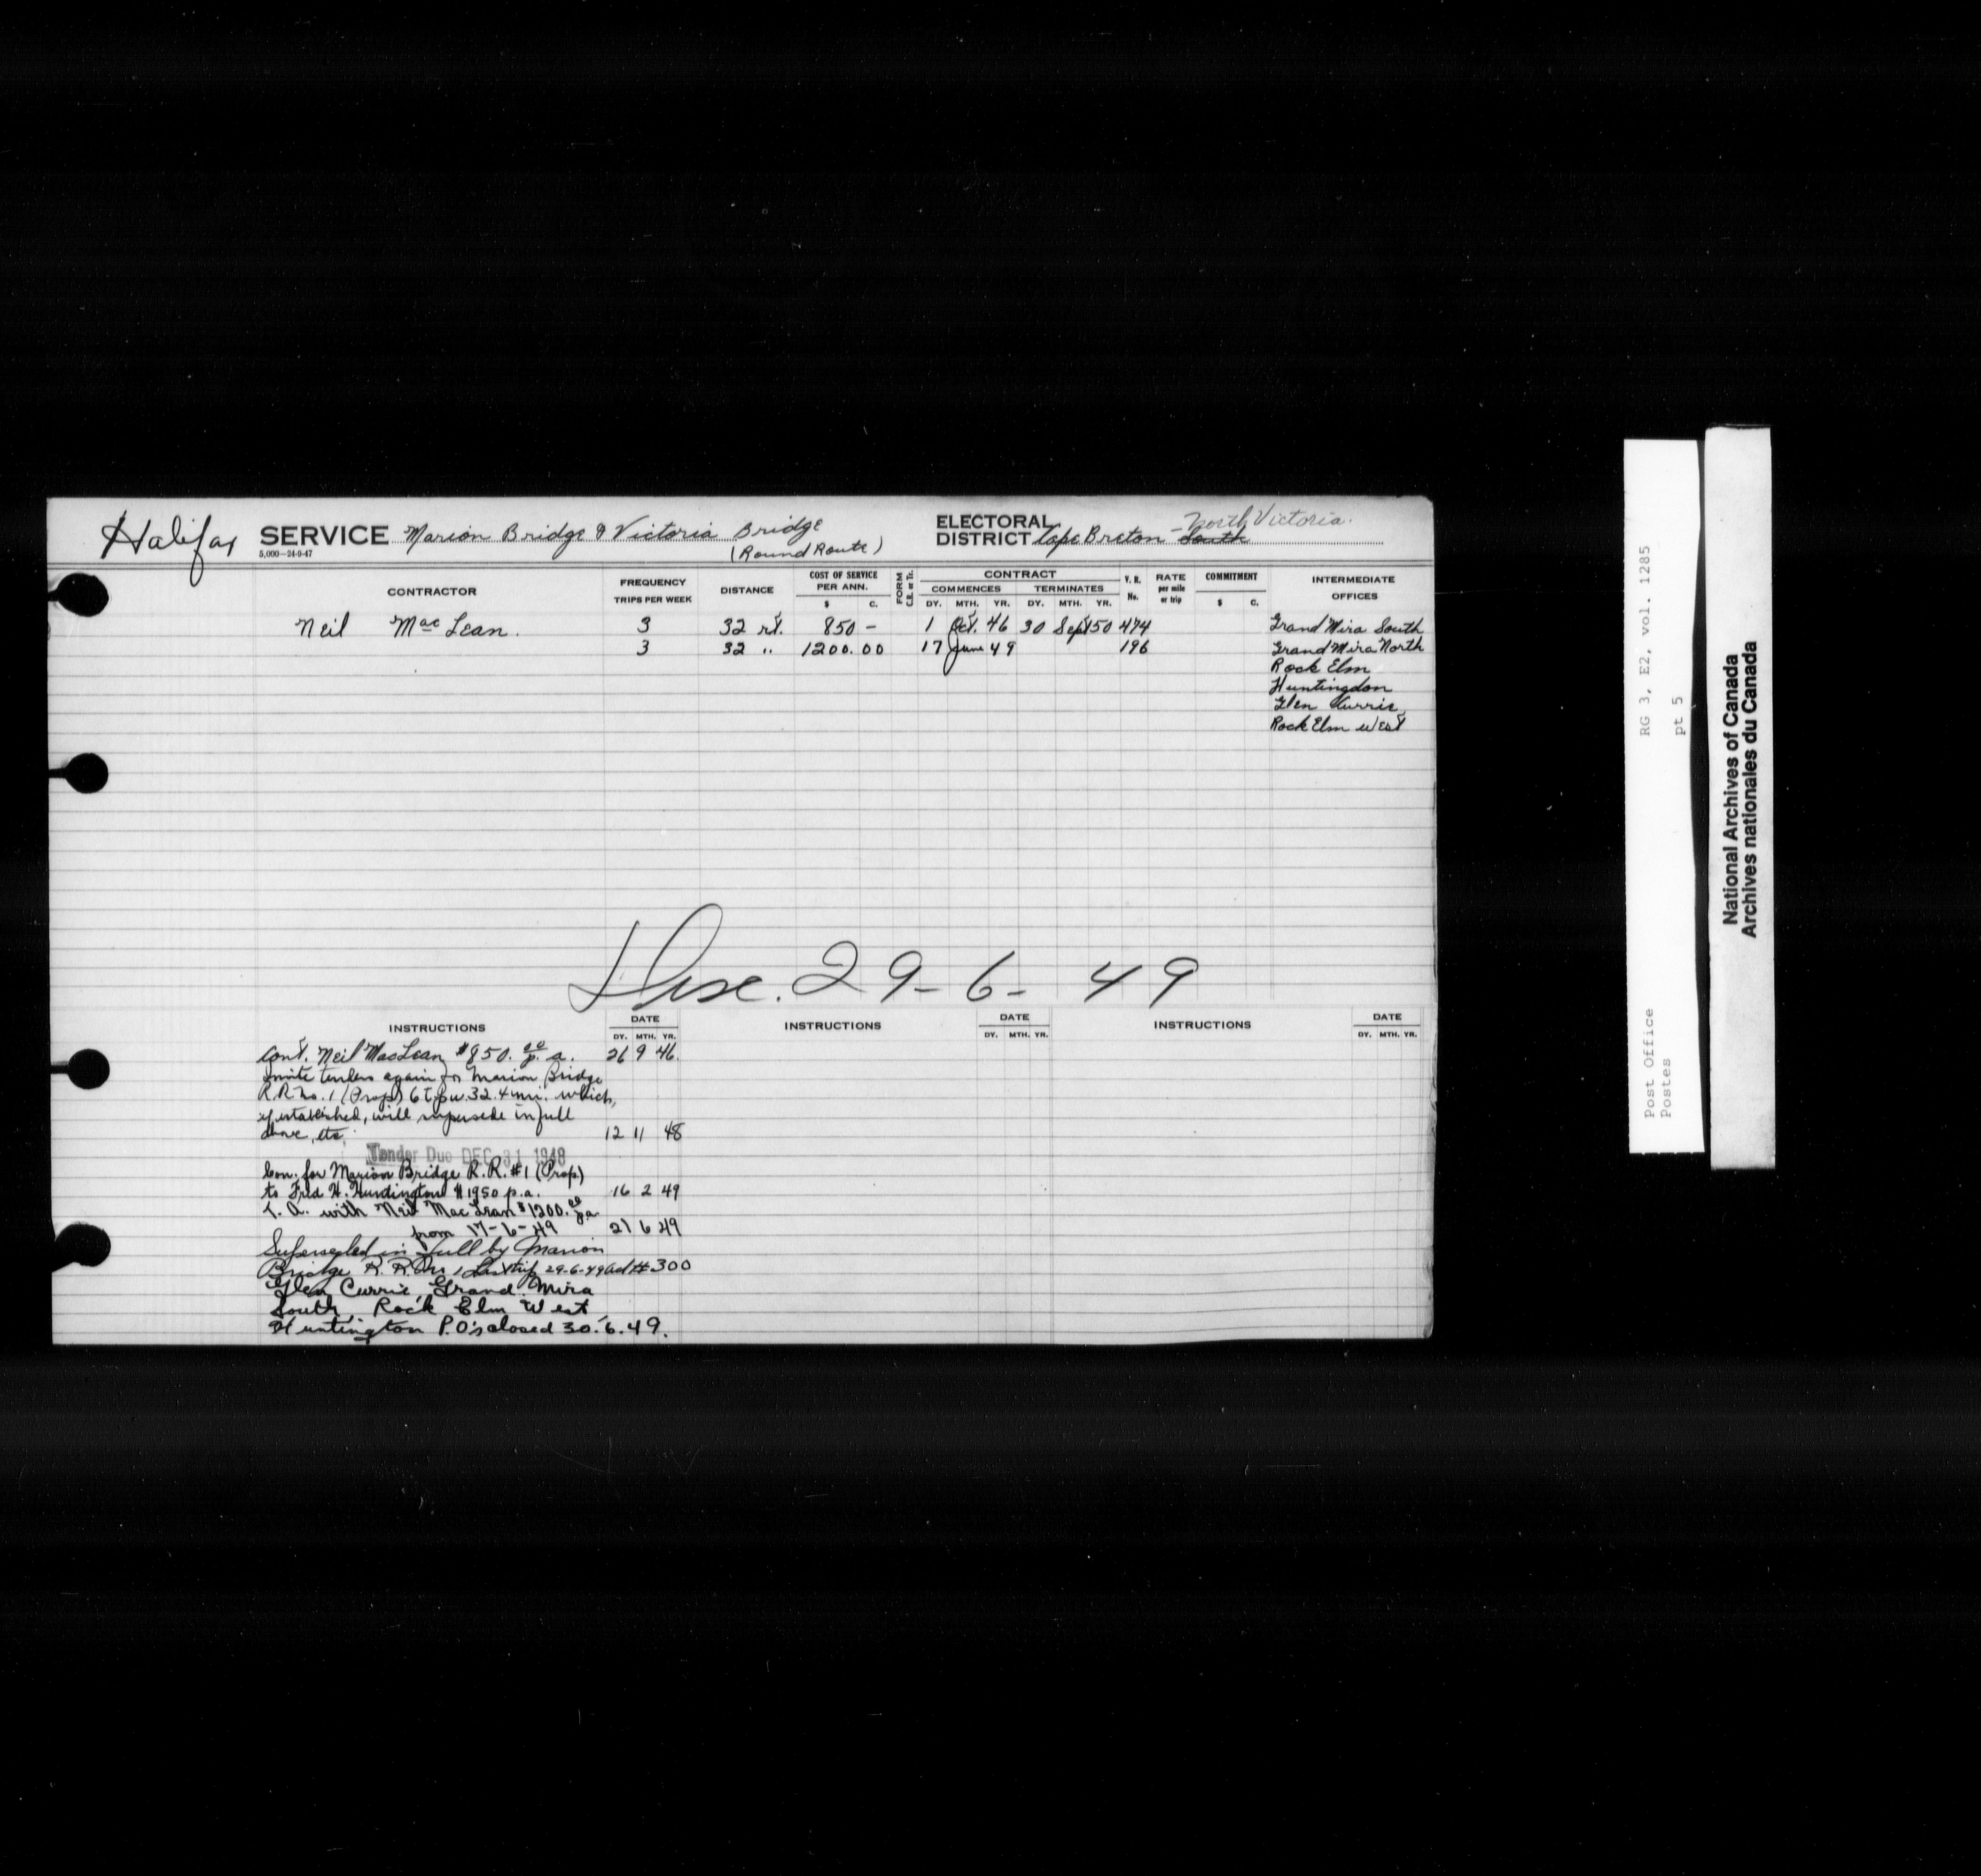 Halifax SERVICE Marion Bridge & Victoria Bridge
(Round Route)
5,000—24-9-47
ELECTORAL DISTRICT Cape Breton - South North Victoria.
CONTRACTOR
FREQUENCY TRIPS PER WEEK
DISTANCE
COST OF SERVICE PER ANN. $ C.
FORM C.R. or Tr.
CONTRACT
COMMENCES DY. MTH. YR.
TERMINATES DY. MTH. YR.
V. R. No.
RATE per mile or trip
COMMITMENT $ C.
INTERMEDIATE OFFICES
Neil MacLean. 3 32 rt. 850 - 1 Oct. 46 30 Sept 50 474 Grand Mira South
3 32 " 1200.00 17 June 49 196 Grand Mira North
Rock Elm
Huntingdon
Glen Currie
Rock Elm West
Disc. 29-6-49
INSTRUCTIONS DATE DY. MTH. YR. INSTRUCTIONS DATE DY. MTH. YR. INSTRUCTIONS DATE DY. MTH. YR.
Cont. Neil MacLean $850.00 p. a. 26 9 46
Invite tenders again for Marion Bridge
R.R. No. 1 (Prop) 6 t.p.w. 32.4 mi. which,
if established, will supersede in full
above, etc. 12 11 48
Tender Due DEC 31 1948
Con. for Marion Bridge R.R. #1 (Prop)
to Fred H. Huntington $1950 p.a. 16 2 49
T. A. with Neil MacLean $1200.00 p.a.
from 17-6-49 21 6 49
Superseded in full by Marion
Bridge R. R. No 1 Last trip 29-6-49 ad # 300
Glen Currie, Grand Mira
South, Rock Elm West
Huntington P.O's closed 30.6.49.
RG 3, E2, vol. 1285
pt 5
Post Office
Postes
National Archives of Canada
Archives nationales du Canada